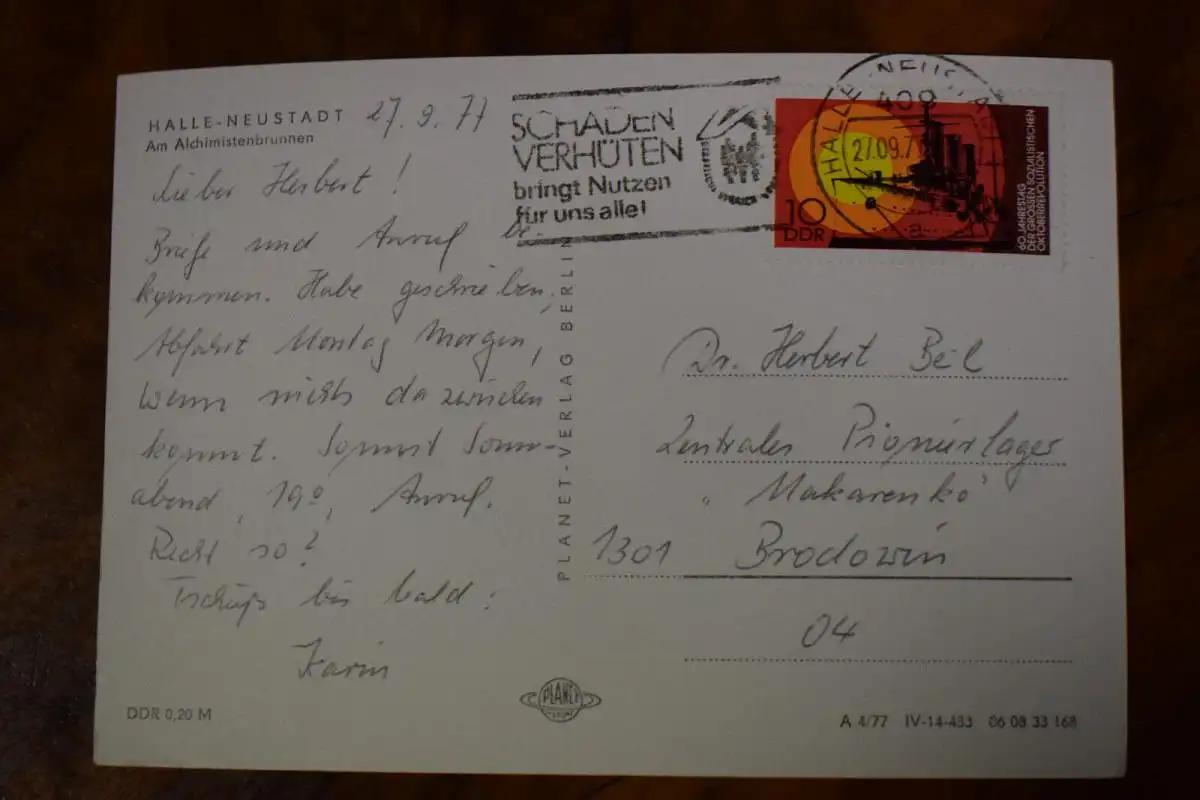 HALLE-NEUSTADT 27.9.77
Am Alchimistenbrunnen
Lieber Herbert!
Briefe und Anruf be-
kommen. Habe geschrieben,
Abfahrt Montag Morgen,
wenn nichts dazwischen
kommt. Sonst Sonn-
abend, 19⁰, Anruf.
Recht so?
Tschüß bis bald:
Karin
DDR 0,20 M
PLANET-VERLAG BERLIN
PLANET
SCHADEN
VERHÜTEN
bringt Nutzen
für uns alle!
HALLE-NEUSTADT
409
27.09.7
a
10
DDR
60. JAHRESTAG
DER GROSSEN SOZIALISTISCHEN
OKTOBERREVOLUTION
Dr. Herbert Beil
Zentrales Pionierlager
"Makarenko"
1301 Brodowin
04
A 4/77 IV-14-483 06 08 33 168